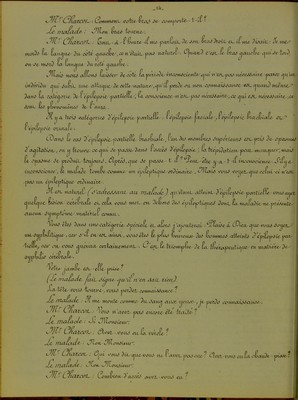 Mr Charcot. Comment votre bras se comporte-t-il?
Le malade. Mon bras tourne.
Mr Charcot. à l'heure il me parlait de son bras droit et il me disait: Je me
mords la langue du côté gauche; ce n'était pas naturel. Quand c'est le bras gauche qui se tord
on se mord la langue du côté gauche.
Mais nous allons laisser de côté la période inconsciente qui n'est pas nécessaire parce qu'un
individu qui subit une attaque de cette nature, qu'il perde ou non connaissance est quand même
dans la catégorie de l'épilepsie partielle; la conscience n'est pas nécessaire, ce qui est nécessaire, ce
sont les phénomènes de l'aura.
Il y a trois catégories d'épilepsie partielle: l'épilepsie faciale, l'épilepsie brachiale et
l'épilepsie crurale.
Dans le cas d'épilepsie partielle brachiale, l'un des membres supérieurs est pris de spasme
d'agitation, on y trouve ce qui se passe dans l'accès d'épilepsie; la trépidation peut manquer, mais
le spasme se produit toujours. Après, que se passe-t-il? Peut-être y a-t-il inconscience. S'il y a
inconscience, le malade tombe comme un épileptique ordinaire. Mais vous voyez que celui-ci n'est
pas un épileptique ordinaire.
Il est mortel (s'adressant au malade) qu'étant atteint d'épilepsie partielle vous ayez
quelque lésion cérébrale et cela vous met en dehors des épileptiques dont la maladie ne présente
aucun symptôme matériel connu.
Vous êtes dans une catégorie spéciale et alors j'ajouterai: Plaise à Dieu que vous soyez
un syphilitique, car s'il en est ainsi, vous êtes le plus heureux des hommes atteints d'épilepsie par-
tielle, car on vous guérira certainement. C'est le triomphe de la thérapeutique en matière de
syphilis cérébrale.
Votre jambe est-elle prise?
(Le malade fait signe qu'il n'en sait rien)
La tête vous tourne, vous perdez connaissance?
Le malade. Il me monte comme du sang aux yeux; je perds connaissance.
Mr Charcot. Vous n'avez pas encore été traité?
Le malade. Si Monsieur.
Mr Charcot. Avez-vous eu la vérole?
Le malade. Non Monsieur.
Mr Charcot. Qui vous dit que vous ne l'avez pas eue? Avez-vous eu la chaude-pisse?
Le malade. Non Monsieur.
Mr Charcot. Combien d'accès avez-vous eu?